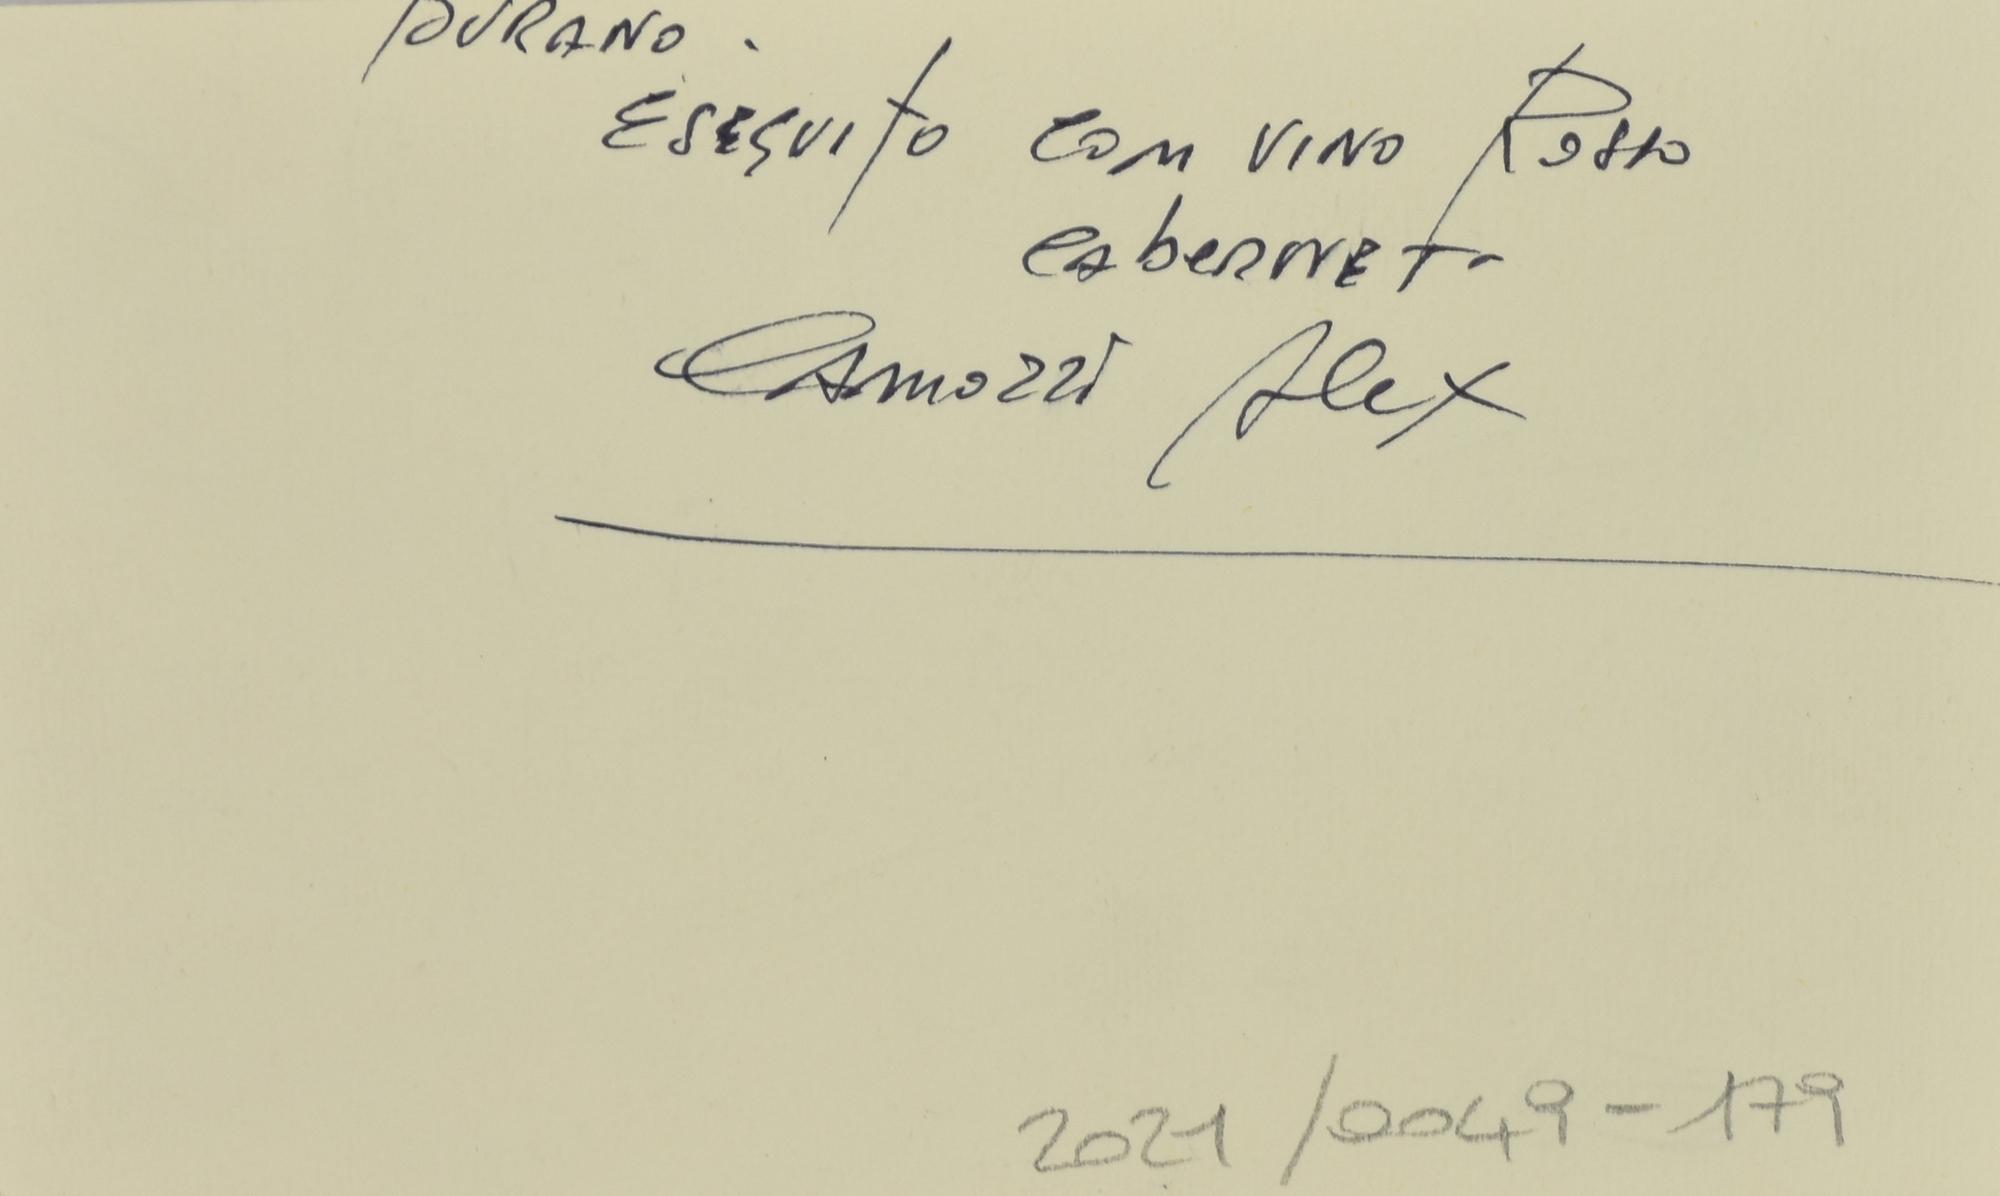 DURANO.
ESEGUITO CON VINO ROSSO
CABERNET.
CAMOZZI Alex
2021/0049-179